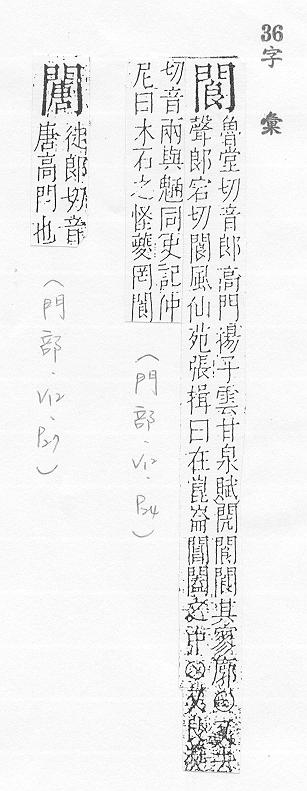 36字彙
閬 魯堂切音郎高門揚子雲甘泉賦閌閬閬其寥廓
聲郎宕切閬風仙苑張揖曰在崑崙閶闔之中
切音兩與魎同史記仲
尼曰木石之怪夔罔閬
(門部.V12.P24)
闛 徒郎切音
唐高門也
(門部.V12.P27)